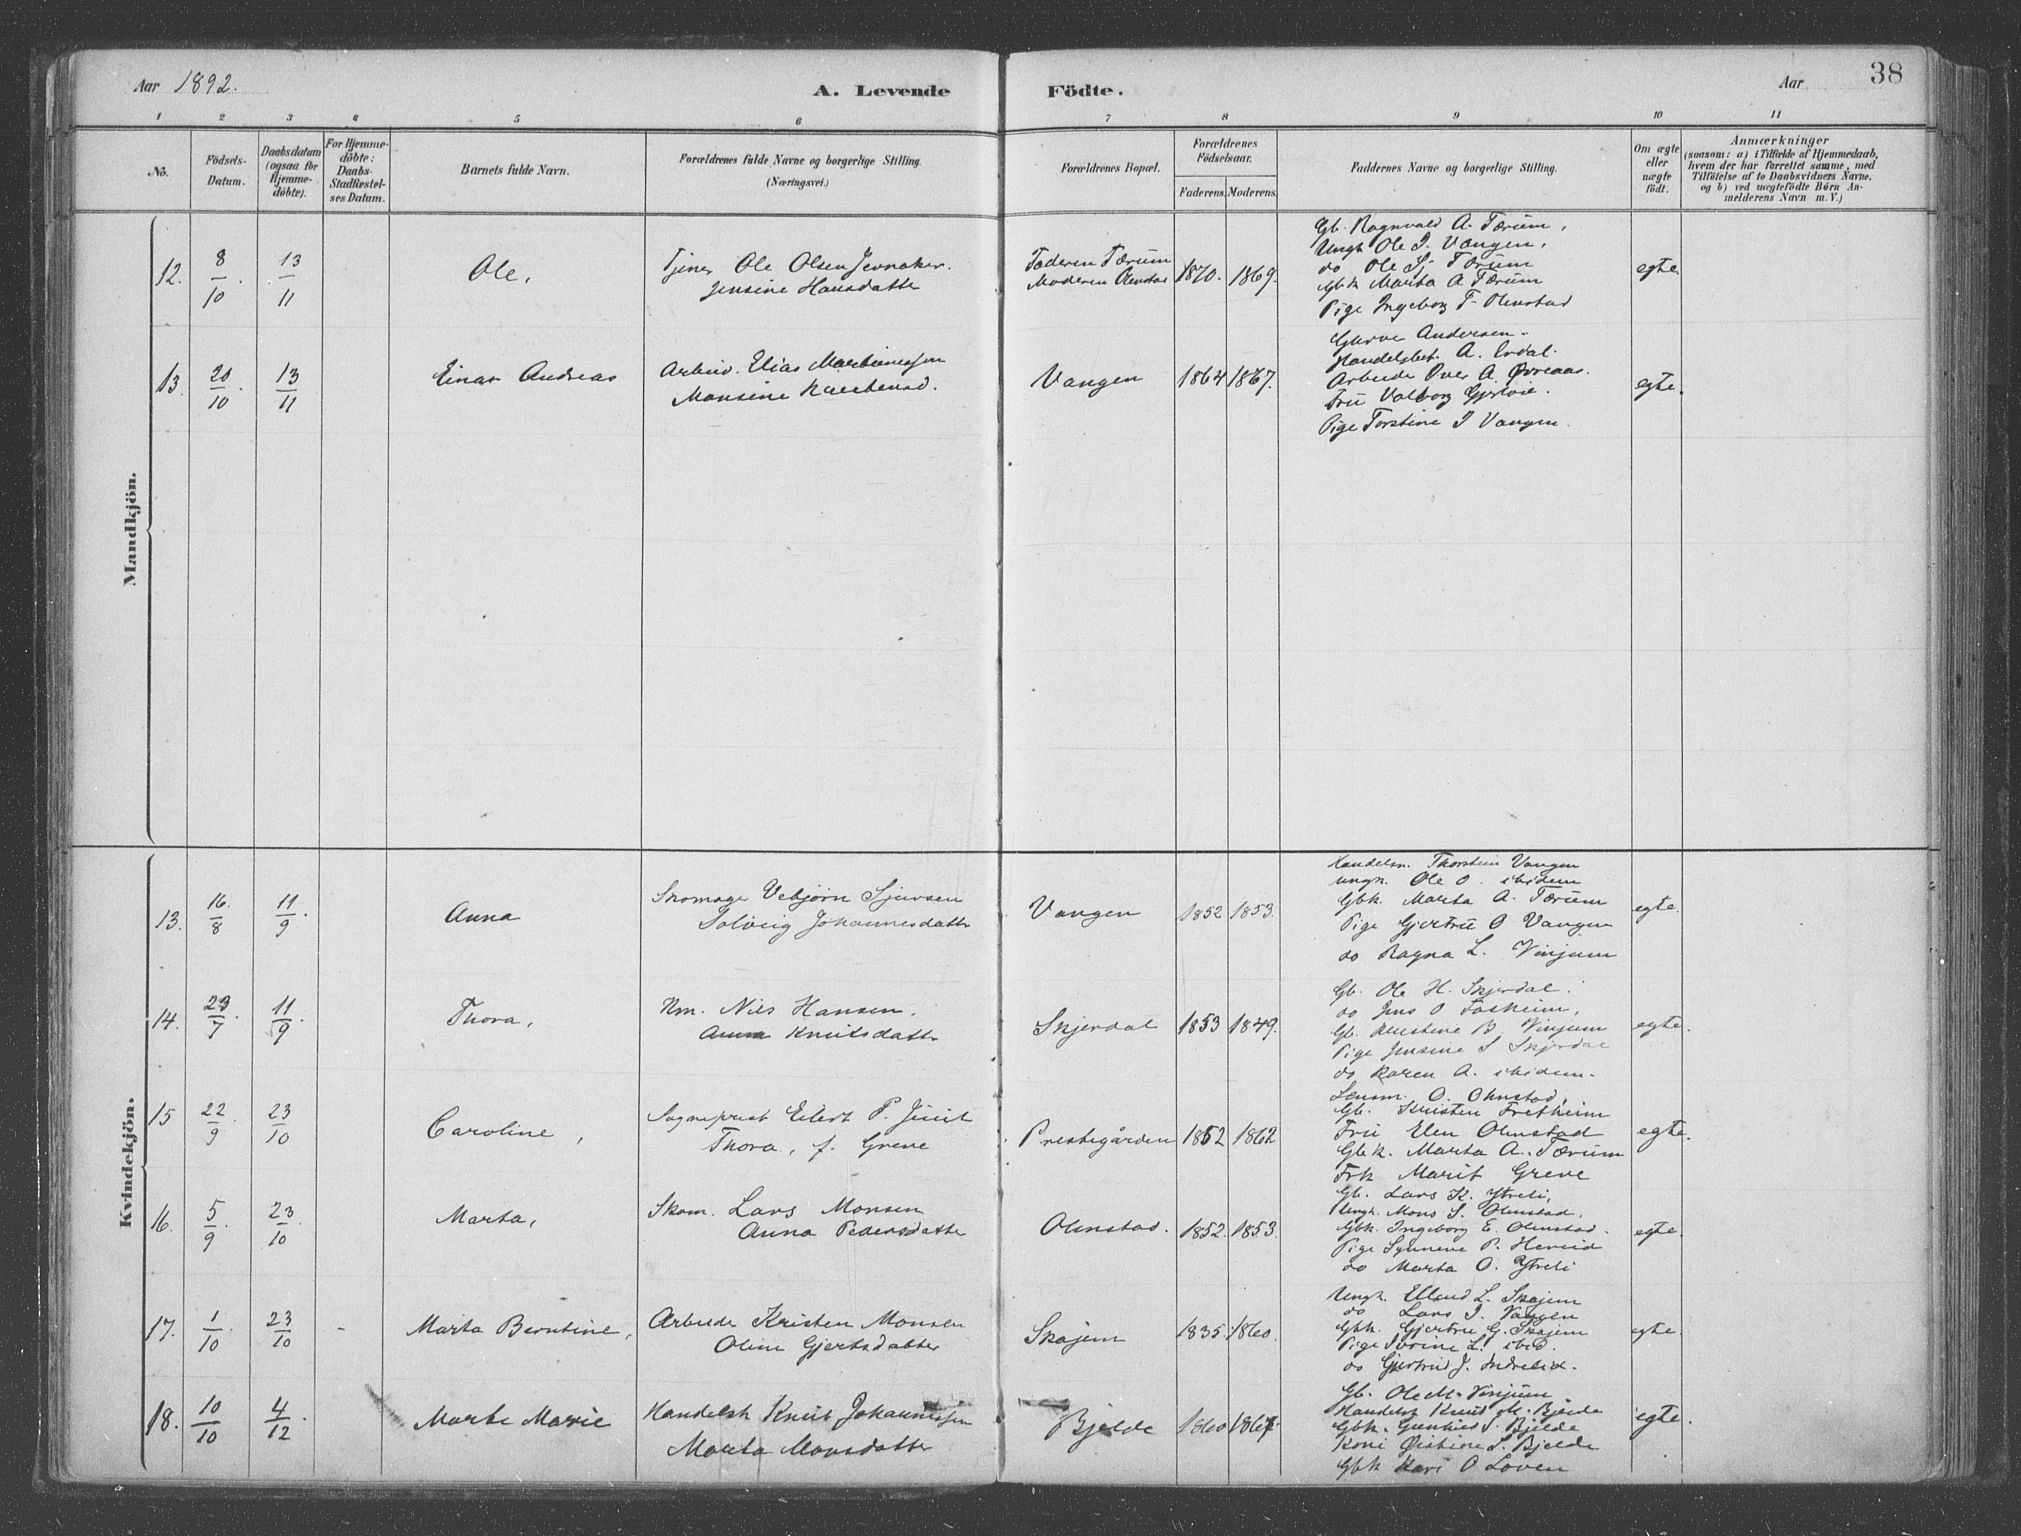 Aar 1892.
A. Levende Födte.
Aar
38
1 2 3 4 5 6 7 8 9 10 11
No.
Födsels-Datum.
Daabsdatum (ogsaa for Hjemme-döbte).
For Hjemme-döbte: Daabs-Stadfæstel-ses Datum.
Barnets fulde Navn.
Forældrenes fulde Navne og borgerlige Stilling. (Næringsvei.)
Forældrenes Bopæl.
Forældrenes Födselsaar.
Faderens. Moderens.
Faddernes Navne og borgerlige Stilling.
Om ægte eller uægte födt.
Anmærkninger
(saasom: a) i Tilfælde af Hjemmedaab, hvem der har forrettet samme, med Tilföielse af to Daabsvidners Navne, og b) ved uægtefödte Börn An-melderens Navn m. V.)
Mandkjön.
12. 8/10. 13/11
Ole,
Tjener Ole Olsen Jevnaker.
Jensine Hansdatter
Faderen Tærum
Moderen Olmstad
1870. 1869.
Gb. Ragnvald A. Tærum,
Ungk. Ole I. Vangen,
do Ole S. Tærum
Gbk Marta A Tærum
Pige Ingeborg T. Olmstad
egte.
13. 20/10. 13/11
Einar Andreas
Arbeid. Elias
Monsine
Vangen
1864 1867.
Andersen.
Handelsbet. A.
Arbeide A. Øvreaas.
Fru Valborg
Pige Torstine I Vangen.
egte.
Kvindekjön.
13. 16/8 11/9.
Anna
Skomager Vebjørn Sjursen
Solveig Johannesdatter
Vangen
1852 1853.
Handelsm. Thorstein Vangen
Ungk. Ole O. ibidem
Gbk. Marta A. Tærum
Pige Gjertru O Vangen
do Ragna L. Vinjum
egte.
14. 23/7. 11/9.
Thora,
Nm. Nils Hansen,
Anna Knutsdatter
Skjerdal
1853 1849.
Gb. Ole H. Skjerdal.
do Jens O Fosheim,
Gb. Kristine B. Vinjum
Pige Jensine S Skjerdal
do Karen A. ibidem.
egte.
15 22/9. 23/10
Caroline,
Sogneprest Eilert P. Juul
Thora, f. Greve
Prestegården
1852 1862
Lensm. O. Olmstad,
Gb. Kristen Fretheim
Fru Elen Olmstad
Gbk. Marta A. Tærum
Frk Marit Greve
egte.
16. 5/9. 23/10.
Marta,
Skom. Lars Monsen
Anna Pedersdatter
Olmstad.
1852. 1853.
Gb. Lars K. Ytreli,
Ungk. Mons S. Olmstad,
Gbk. Ingeborg E. Olmstad.
Pige Synneve P.
do Marta O. Ytreli
egte.
17. 1/10. 23/10
Marta Berntine,
Arbeide Kristen Monsen
Oline Gjertsdatter
Skajem
1835 1860.
Ungk. Elland L. Skajem
do Lars I. Vangen
Gbk. Gjertru G. Skajem
Pige L. ibid.
do Gjertrud J. Indrelid.
egte.
18. 10/10 4/12.
Marte Marie
Handelsk Knut Johannessen
Marta Monsdatter
Bjelde
1860 1867.
Gb. Ole M. Vinjum
Handelsk Knut M. Bjelde
Gbk. S. Bjelde
Kone Kristine S. Bjelde
Gbk Kari O Loven
egte.